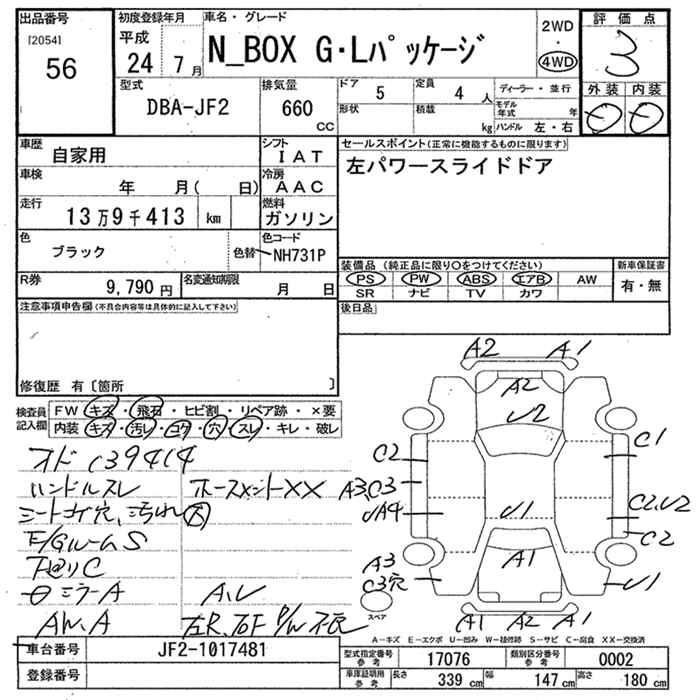 出品番号
[2054]
56
初度登録年月
平成
24 7月
車名・グレード
N_BOX G・Lパッケージ
2WD
4WD
評価点
3
外装 内装
型式
DBA-JF2
排気量
660
cc
ドア 5
形状
定員 4 人
積載 kg
ディーラー・並行
モデル年式 年
ハンドル 左・右
車歴
自家用
シフト
IAT
車検
年 月( 日)
冷房
AAC
走行
13万9千413 km
燃料
ガソリン
色
ブラック
色替
色コード
NH731P
R券
9,790円
名変通知期限
月 日
セールスポイント(正常に機能するものに限ります)
左パワースライドドア
装備品(純正品に限り○をつけてください)
PS PW ABS エアB AW
SR ナビ TV カワ
新車保証書
有・無
注意事項申告欄(不具合内容等は具体的に記入して下さい)
後日品
修復歴 有〔箇所 〕
検査員記入欄
FW キズ・飛石・ヒビ割・リペア跡・×要
内装 キズ・汚レ・コゲ・穴・スレ・キレ・破レ
オド 139414
ハンドルスレ
シートコゲ穴、汚れ大
F/Gルーム S
下回りC
ミラーA
AW.A
A2 A1
A2
U2
C2
C1
A3.C3
UA4
U1
C2.U2
C2
A3
C3穴
A1
U1
スペア
A1 A2 A1
A-キズ E-エクボ U-凹み W-補修跡 S-サビ C-腐食 XX-交換済
車台番号
JF2-1017481
登録番号
型式指定番号
参考
17076
類別区分番号
参考
0002
車庫証明用
参考
長さ 339 cm
幅 147 cm
高さ 180 cm